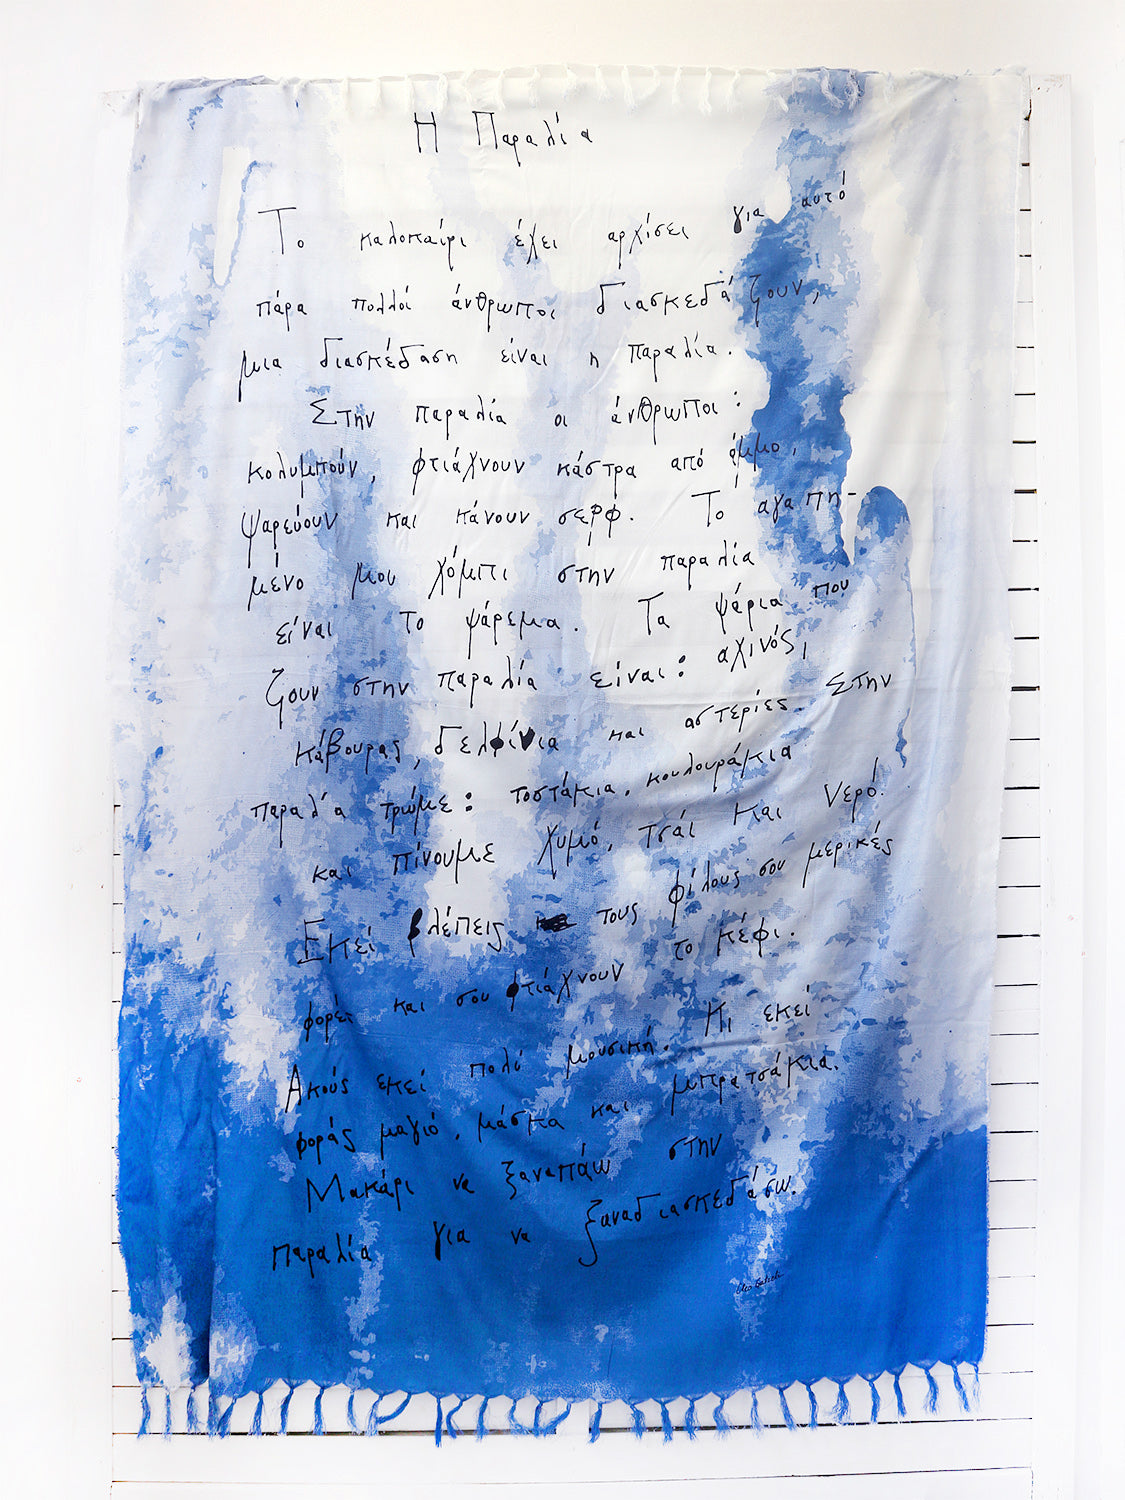 Η Παραλία
Το καλοκαίρι έχει αρχίσει για αυτό
πάρα πολλοί άνθρωποι διασκεδάζουν,
μια διασκέδαση είναι η παραλία.
Στην παραλία οι άνθρωποι:
κολυμπούν, φτιάχνουν κάστρα από άμμο,
ψαρεύουν και κάνουν σερφ. Το αγαπη-
μένο μου χόμπι στην παραλία
είναι το ψάρεμα. Τα ψάρια που
ζουν στην παραλία είναι: αχινός,
κάβουρας, δελφίνια και αστερίες. Στην
παραλία τρώμε: τοστάκια, κουλουράκια
και πίνουμε χυμό, τσάι και νερό.
Εκεί βλέπεις τους φίλους σου μερικές
φορές και σου φτιάχνουν το κέφι.
Ακούς εκεί πολύ μουσική. Κι εκεί
φοράς μαγιό, μάσκα και μπρατσάκια.
Μακάρι να ξαναπάω στην
παραλία για να ξαναδιασκεδάσω.